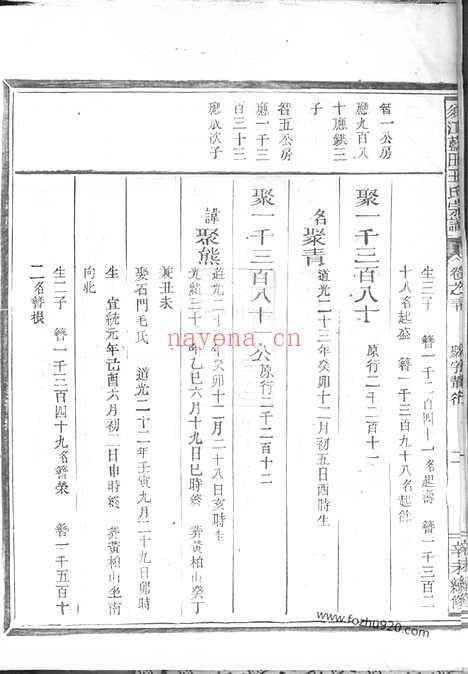 須江嵩田王氏宗譜
卷之三十 聚字舊行 二 辛未續修
生三子 簪一千二百四十一名起壽 簪一千三百二
十八名起盛 簪一千三百九十八名起餘
聚一千三百八十 原行二千二百十一
名聚青 道光二十三年癸卯十二月初五日酉時生
聚一千三百八十一公 原行二千二百十二
諱聚熊 道光二十三年癸卯十二月二十八日亥時生
光緒三十一年乙巳六月十九日巳時終 葬黃柏山癸丁
兼丑未
娶石門毛氏 道光二十二年壬寅九月二十九日卯時
生 宣統元年己酉六月初二日申時終 葬黃柏山坐南
向北
生二子 簪一千三百四十九名簪榮 簪一千五百十
二名簪根
智一公房
應九百八
十應鉷三
子
智五公房
應一千三
百三十三
應成次子
nayona.cn
www.fozhu920.com